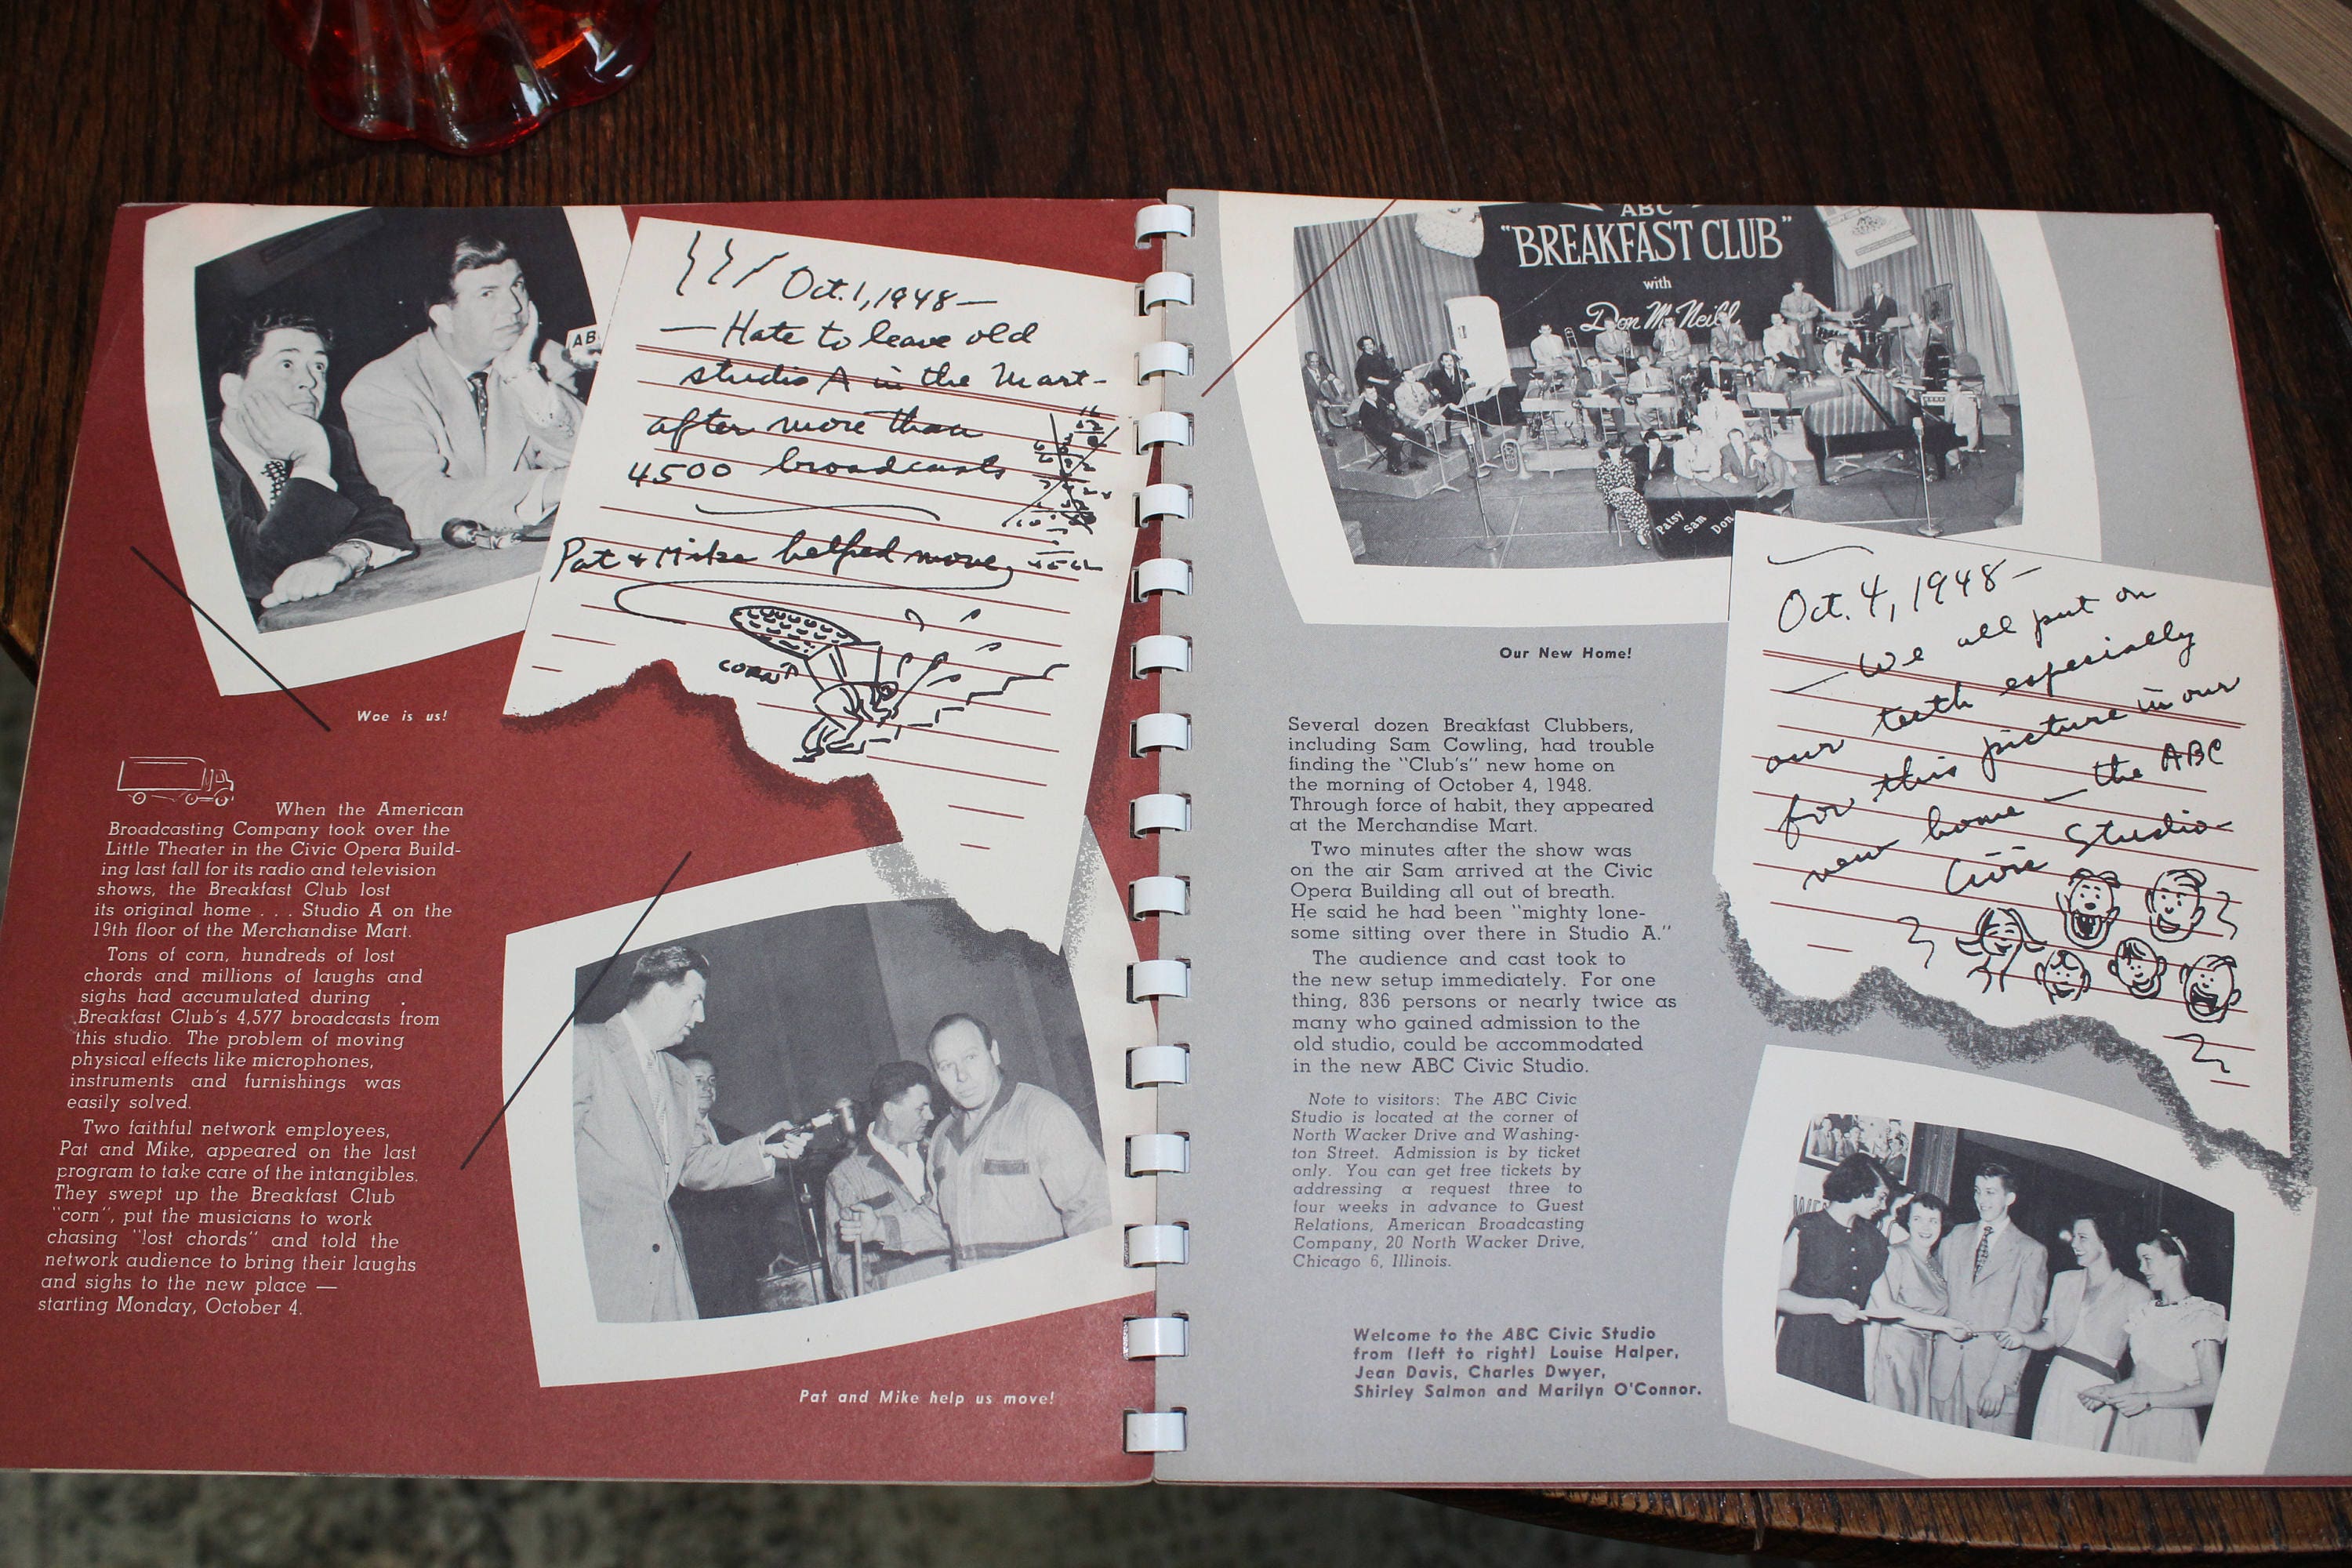 AB
Oct. 1, 1948—
— Hate to leave old
studio A in the Mart-
after more than
4500 broadcasts
Pat & Mike helped move
CORN
Woe is us!
When the American
Broadcasting Company took over the
Little Theater in the Civic Opera Build-
ing last fall for its radio and television
shows, the Breakfast Club lost
its original home . . . Studio A on the
19th floor of the Merchandise Mart.
Tons of corn, hundreds of lost
chords and millions of laughs and
sighs had accumulated during
Breakfast Club's 4,577 broadcasts from
this studio. The problem of moving
physical effects like microphones,
instruments and furnishings was
easily solved.
Two faithful network employees,
Pat and Mike, appeared on the last
program to take care of the intangibles.
They swept up the Breakfast Club
"corn", put the musicians to work
chasing "lost chords" and told the
network audience to bring their laughs
and sighs to the new place —
starting Monday, October 4.
Pat and Mike help us move!
ABC
"BREAKFAST CLUB"
with
Don McNeill
Patsy
Sam
Don
Our New Home!
Oct. 4, 1948—
— We all put on
our teeth especially
for this picture in our
new home — the ABC
Civic Studio-
Several dozen Breakfast Clubbers,
including Sam Cowling, had trouble
finding the "Club's" new home on
the morning of October 4, 1948.
Through force of habit, they appeared
at the Merchandise Mart.
Two minutes after the show was
on the air Sam arrived at the Civic
Opera Building all out of breath.
He said he had been "mighty lone-
some sitting over there in Studio A."
The audience and cast took to
the new setup immediately. For one
thing, 836 persons or nearly twice as
many who gained admission to the
old studio, could be accommodated
in the new ABC Civic Studio.
Note to visitors: The ABC Civic
Studio is located at the corner of
North Wacker Drive and Washing-
ton Street. Admission is by ticket
only. You can get free tickets by
addressing a request three to
four weeks in advance to Guest
Relations, American Broadcasting
Company, 20 North Wacker Drive,
Chicago 6, Illinois.
Welcome to the ABC Civic Studio
from (left to right) Louise Halper,
Jean Davis, Charles Dwyer,
Shirley Salmon and Marilyn O'Connor.